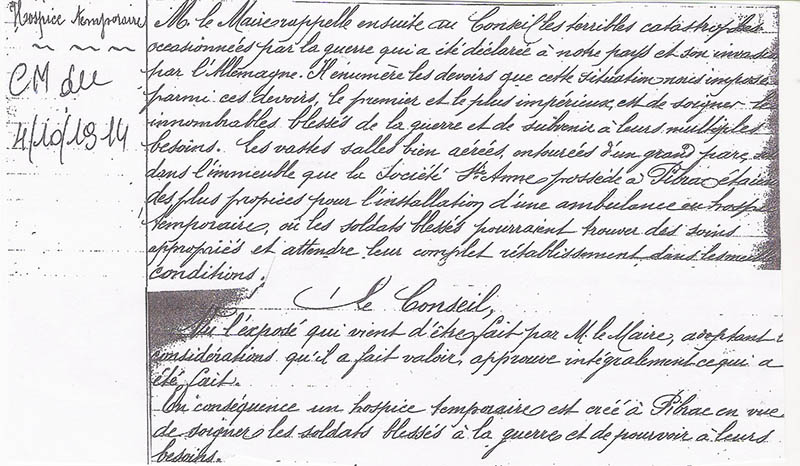 Hospice temporaire
CM du
4/10/1914
M. le Maire rappelle ensuite au Conseil les terribles catastrophes
occasionnées par la guerre qui a été déclarée à notre pays et son invasion
par l'Allemagne. Il énumère les devoirs que cette situation nous impose
parmi ces devoirs, le premier et le plus impérieux, est de soigner
innombrables blessés de la guerre et de subvenir à leurs multiples
besoins. Les vastes salles bien aérées, entourées d'un grand parc,
dans l'immeuble que la Société Ste Anne possède à Pibrac étaient
des plus propices pour l'installation d'une ambulance ou hospice
temporaire, où les soldats blessés pourraient trouver des soins
appropriés et attendre leur complet rétablissement dans les meill
conditions.
Le Conseil,
Vu l'exposé qui vient d'être fait par M. le Maire, acceptant
considérations qu'il a fait valoir, approuve intégralement ce qui a
été fait.
En conséquence un hospice temporaire est créé à Pibrac en vue
de soigner les soldats blessés à la guerre et de pourvoir à leurs
besoins.